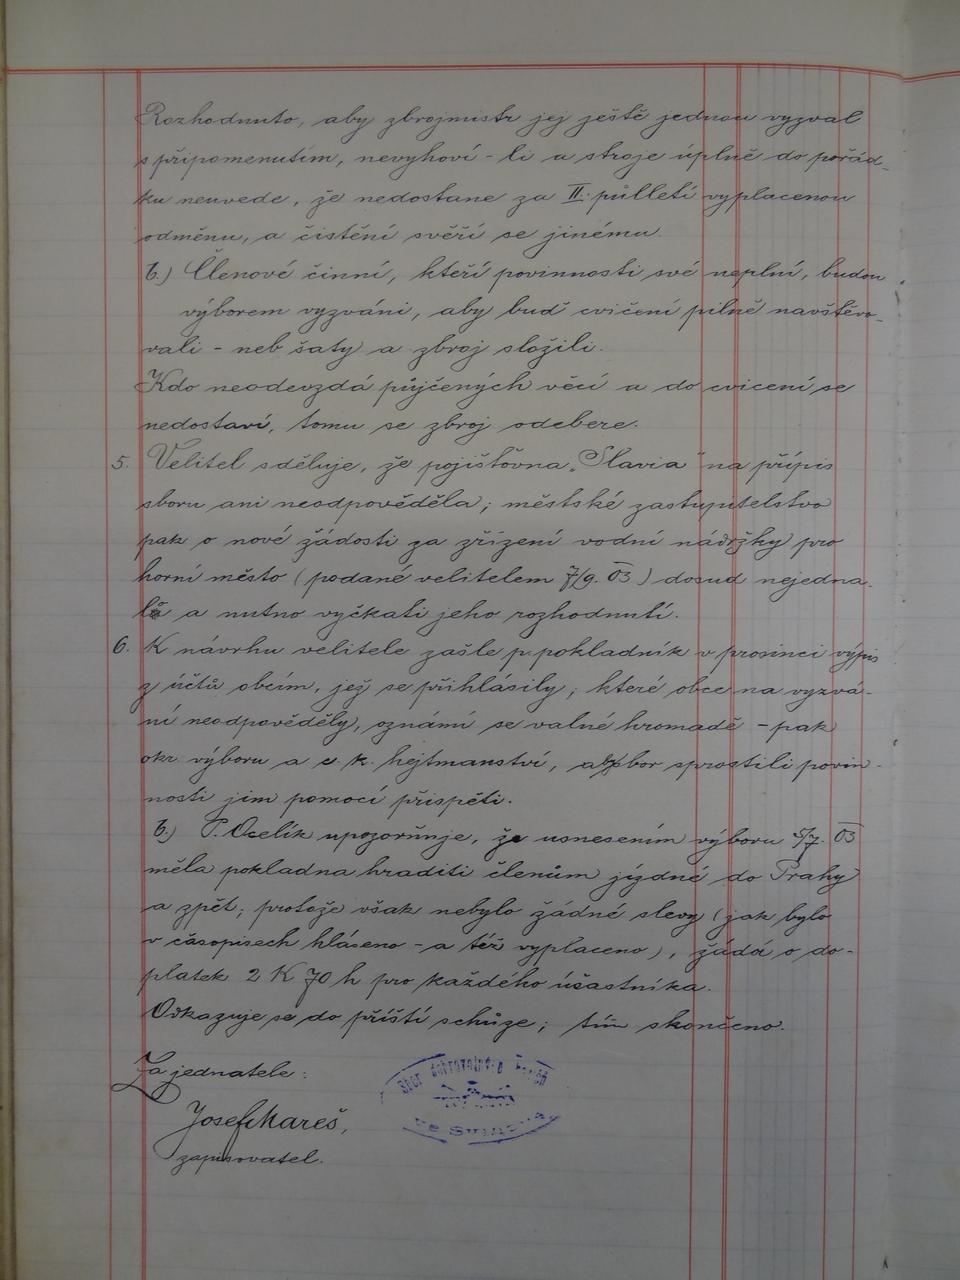 Rozhodnuto, aby zbrojmistr jej ještě jednou vyzval
s připomenutím, nevyhoví-li a stroje úplně do pořád-
ku neuvede, že nedostane za II. půlletí vyplacenou
odměnu, a čistění svěří se jinému.
b.) Členové činní, kteří povinnosti své neplní, budou
výborem vyzváni, aby buď cvičení pilně navštěvo-
vali - neb šaty a zbroj složili.
Kdo neodevzdá půjčených věcí a do cvicení se
nedostaví, tomu se zbroj odebere.
5. Velitel sděluje, že pojišťovna „Slavia" na přípis
sboru ani neodpověděla; městské zastupitelstvo
pak o nové žádosti za zřízení vodní nádržky pro
horní město (podané velitelem 7/9. 03) dosud nejedna-
lo a nutno vyčkati jeho rozhodnutí.
6. K návrhu velitele zašle p. pokladník v prosinci výpis
z účtů obcím, jež se přihlásily; které obce na vyzvá-
ní neodpověděly, oznámí se valné hromadě - pak
okr. výboru a c. k. hejtmanství, aby sbor sprostili povin-
nosti jim pomocí přispěti.
b.) P. Ocelík upozorňuje, že usnesením výboru 5/7. 03
měla pokladna hraditi členům jízdné do Prahy
a zpět; protože však nebylo žádné slevy (jak bylo
v časopisech hlášeno - a též vyplaceno), žádá o do-
platek 2 K 70 h pro každého účastníka.
Odkazuje se do příští schůze; tím skončeno.
Za jednatele:
Josef Mareš,
zapisovatel.
Sbor dobrovolných hasičů